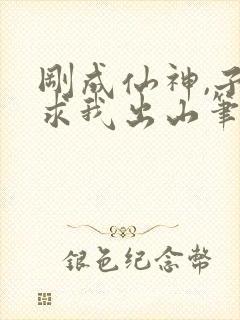 剛成仙神,子
求我出山筆
銀色纪念幣